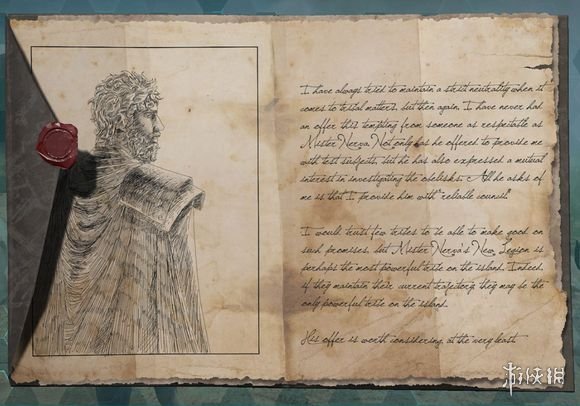 I have always tried to maintain a strict neutrality when it
comes to tribal matters, but then again, I have never had
an offer this tempting from someone as respectable as
Mister Nerva. Not only has he offered to provide me
with test subjects, but he has also expressed a mutual
interest in investigating the obelisks. All he asks of
me is that I provide him with "reliable council."
I would trust few tribes to be able to make good on
such promises, but Mister Nerva's New Legion is
perhaps the most powerful tribe on the island. Indeed,
if they maintain their current trajectory, they may be the
only powerful tribe on the island.
His offer is worth considering, at the very least.
游侠网